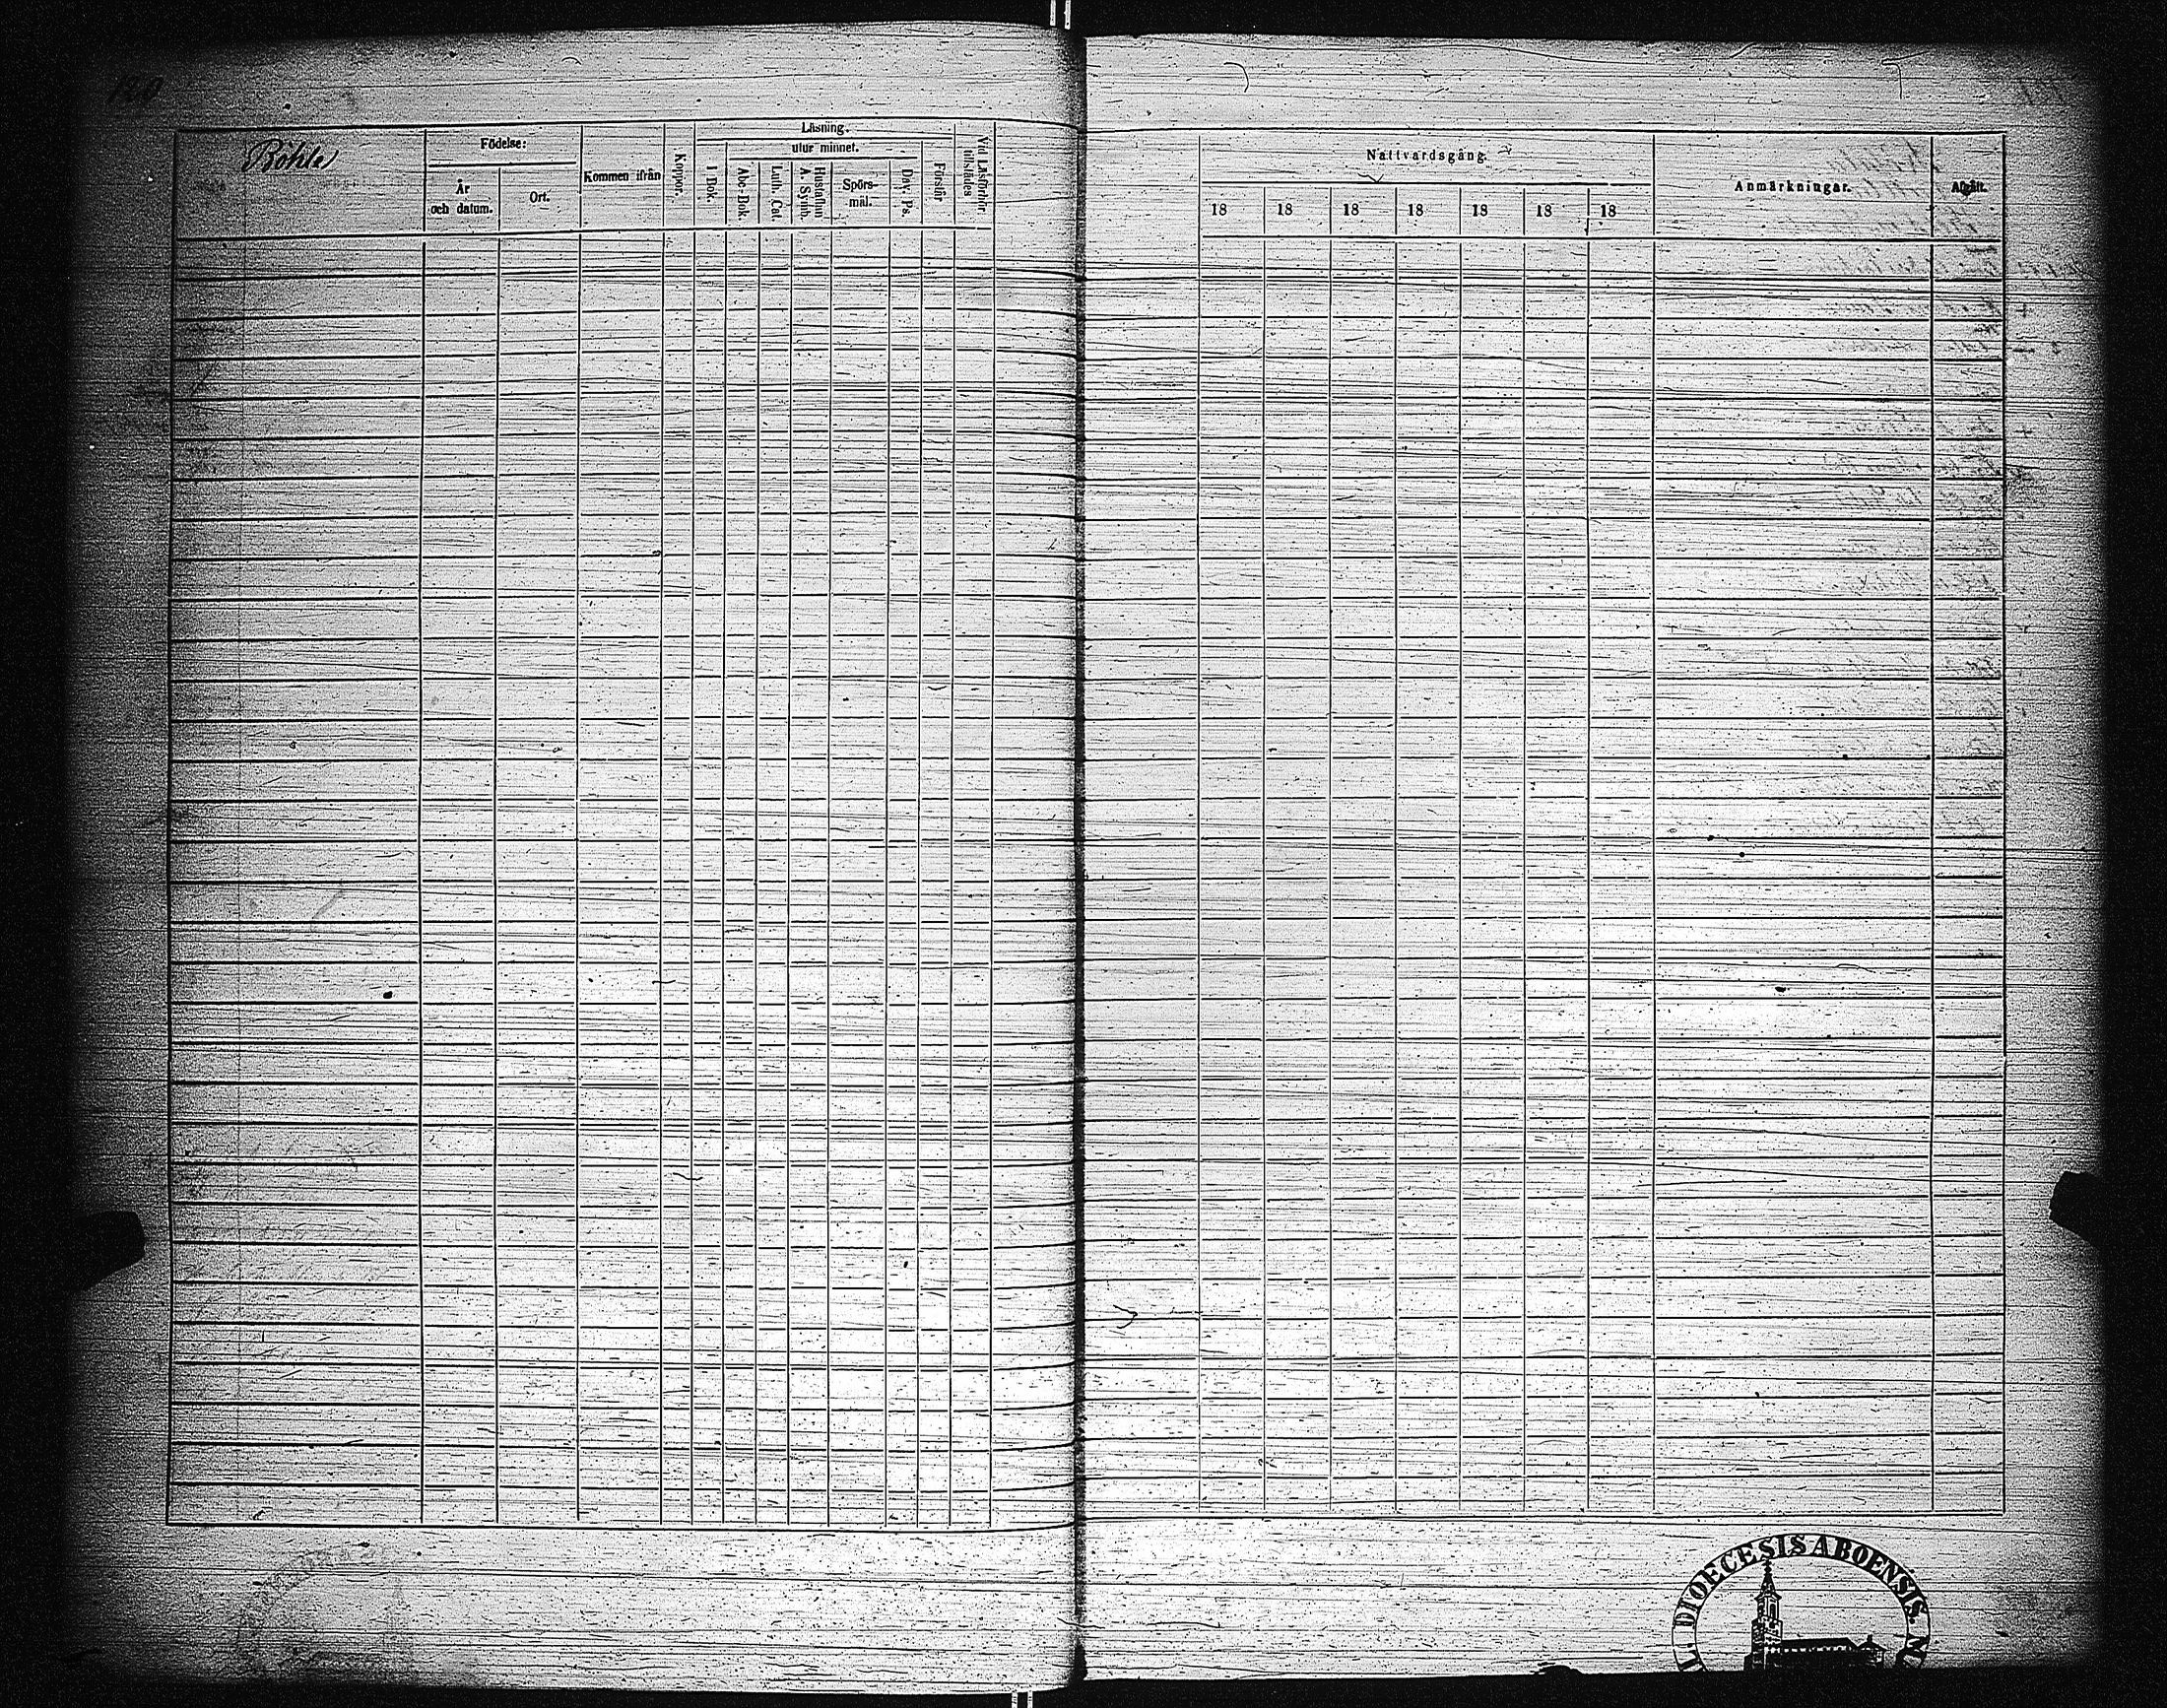 120
Böhle
Födelse:
År och datum.
Ort.
Kommen ifrån
Koppor.
Läsning.
utur minnet.
I Bok.
Abc-Bok.
Luth. Cat.
Hustaflan A. Symb.
Spörs-mål.
Dav. Ps.
Förstår
Vid Läsförhör tillstädes
Nattvardsgång.
18 18 18 18 18 18 18
Anmärkningar.
Afgått.
DIOECESIS ABOENSIS